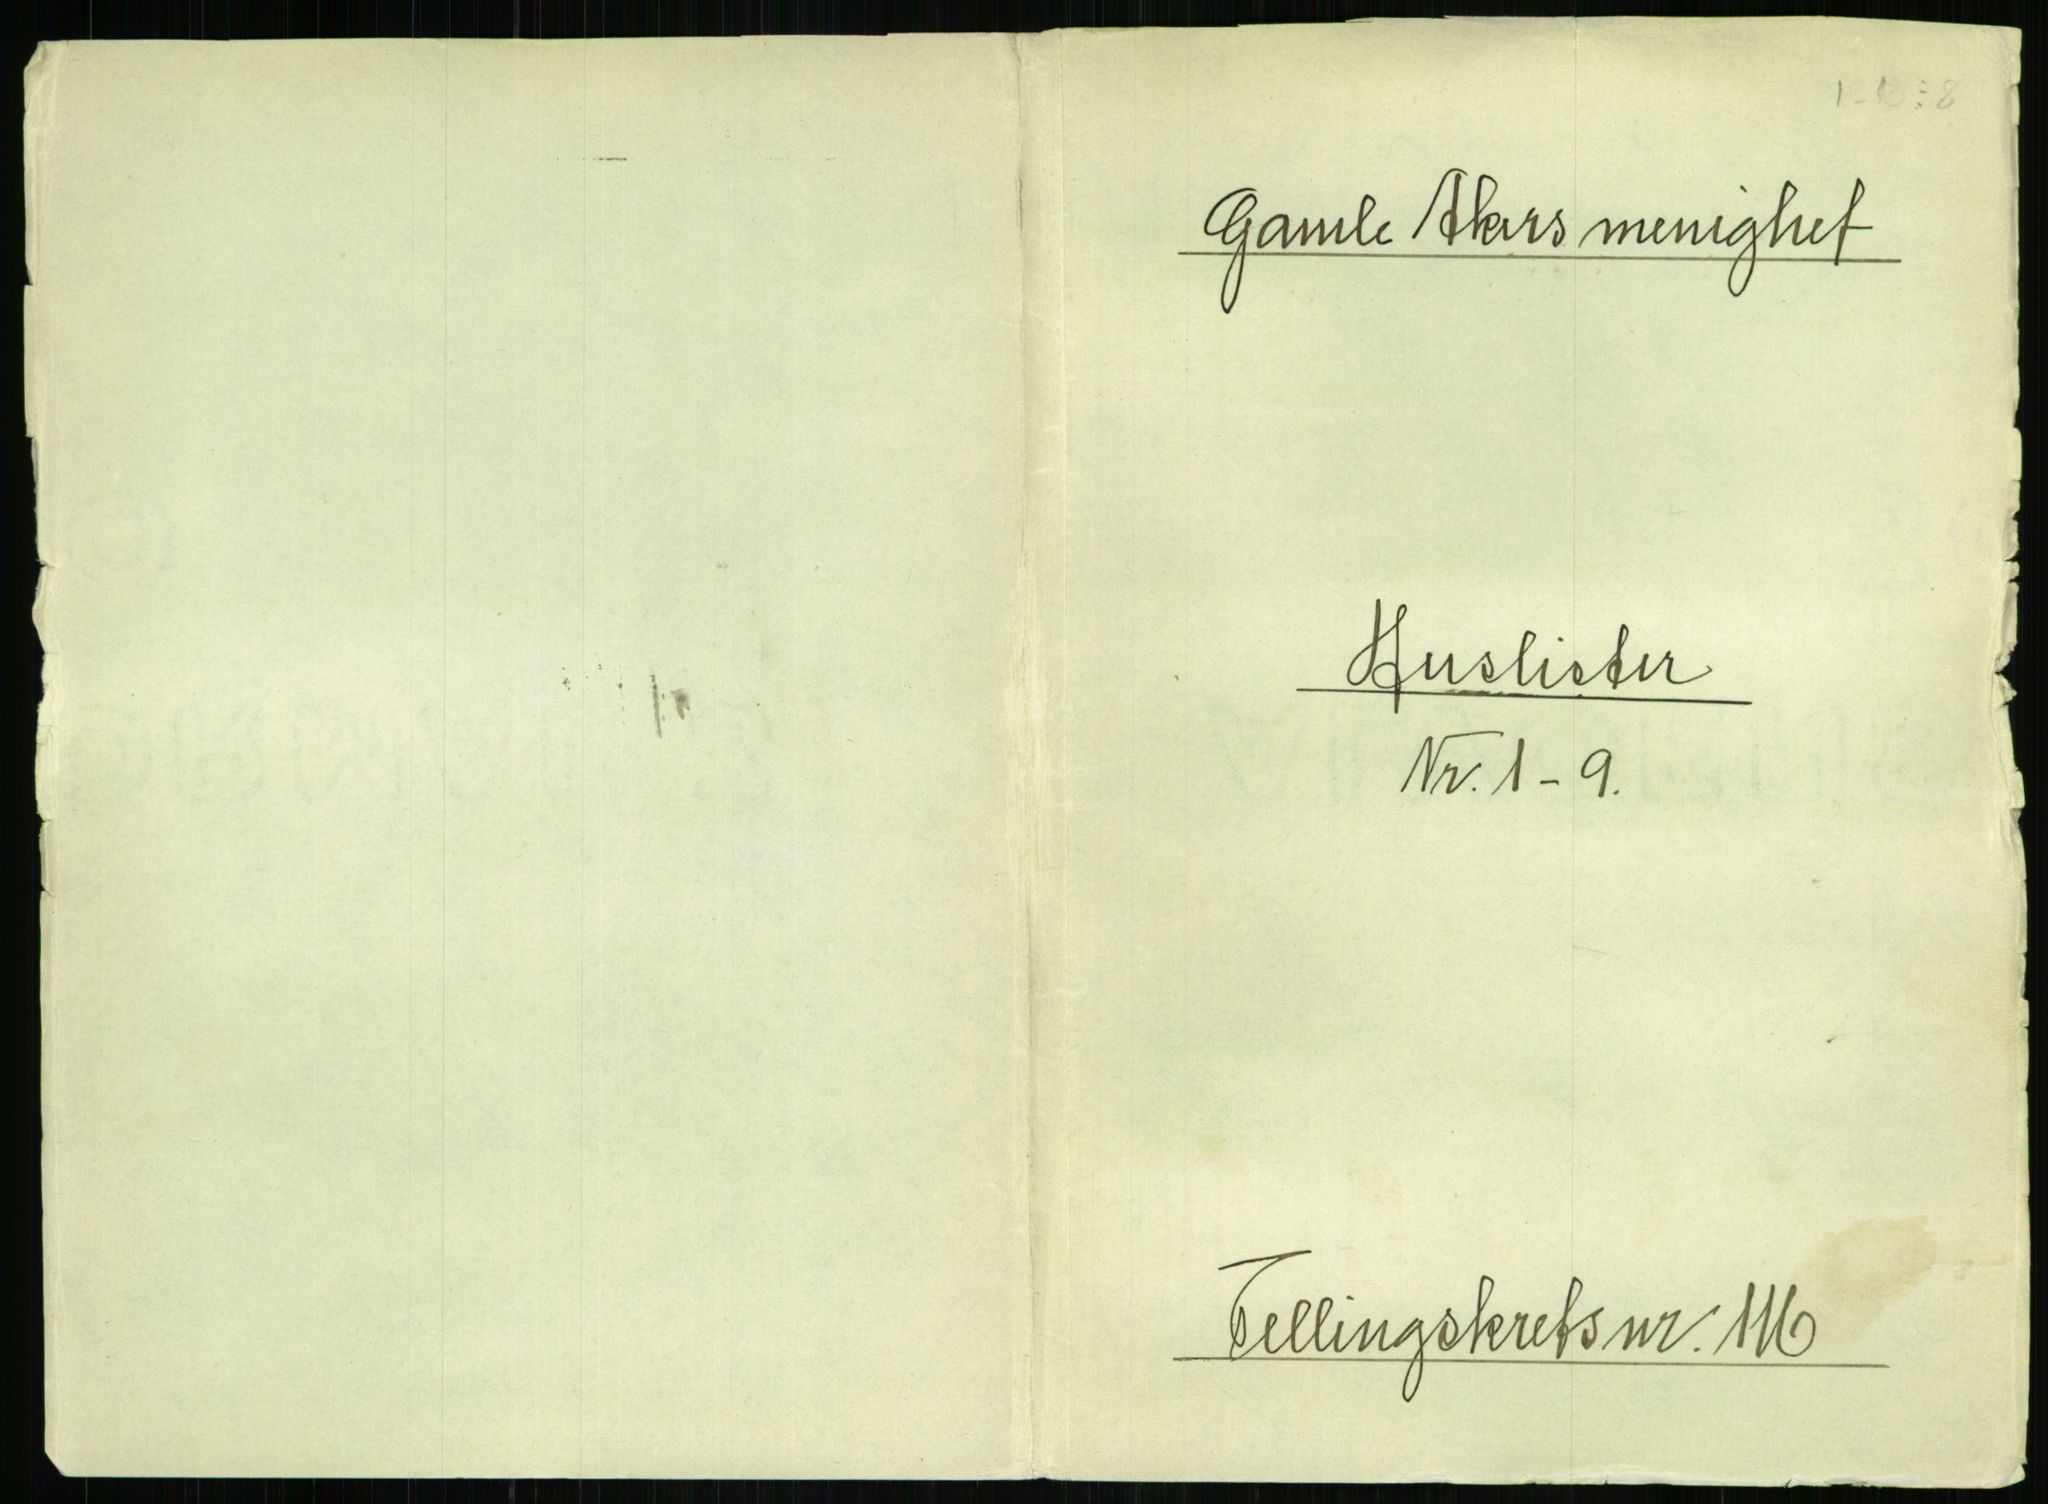 Gamle Akers menighet
Huslister
Nr. 1 - 9.
Tellingskrets nr. 116